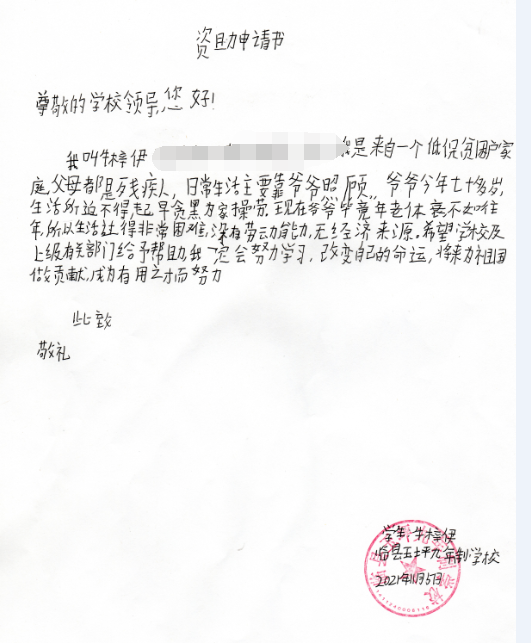 资助申请书
尊敬的学校领导,您好!
我叫牛梓伊 我是来自一个低保贫困户家
庭,父母都是残疾人,日常生活主要靠爷爷照顾,爷爷今年七十多岁,
生活所迫不得起早贪黑为家操劳.现在爷爷毕竟年老体衰不如往
年,所以生活过得非常困难,没有劳动能力,无经济来源.希望学校及
上级有关部门给予帮助,我一定会努力学习,改变自己的命运,将来为祖国
做贡献,成为有用之才而努力
此致
敬礼
学生:牛梓伊
临县五坪九年制学校
2021年11月5日